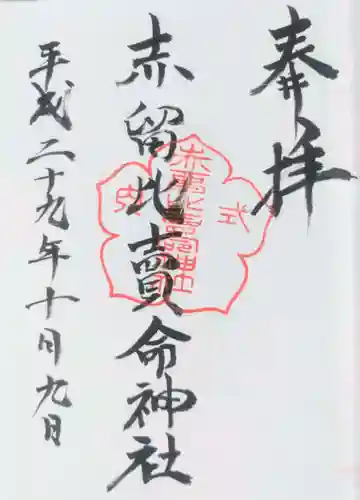 奉拝
赤留比賣命神社
平成二十九年十月九日
式
赤留比賣命神社